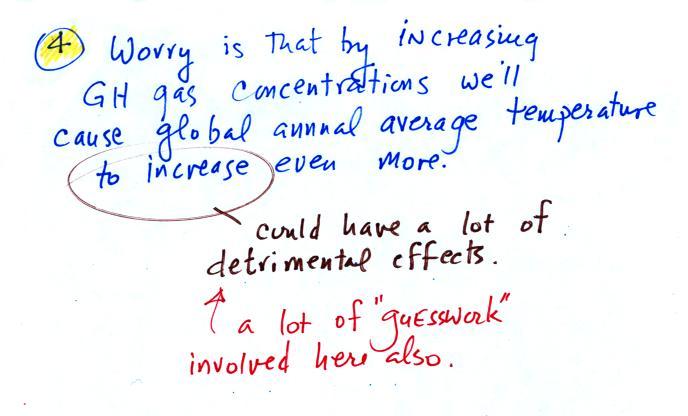 4 Worry is that by increasing
GH gas concentrations we'll
cause global annual average temperature
to increase even more.
could have a lot of
detrimental effects.
a lot of "guesswork"
involved here also.